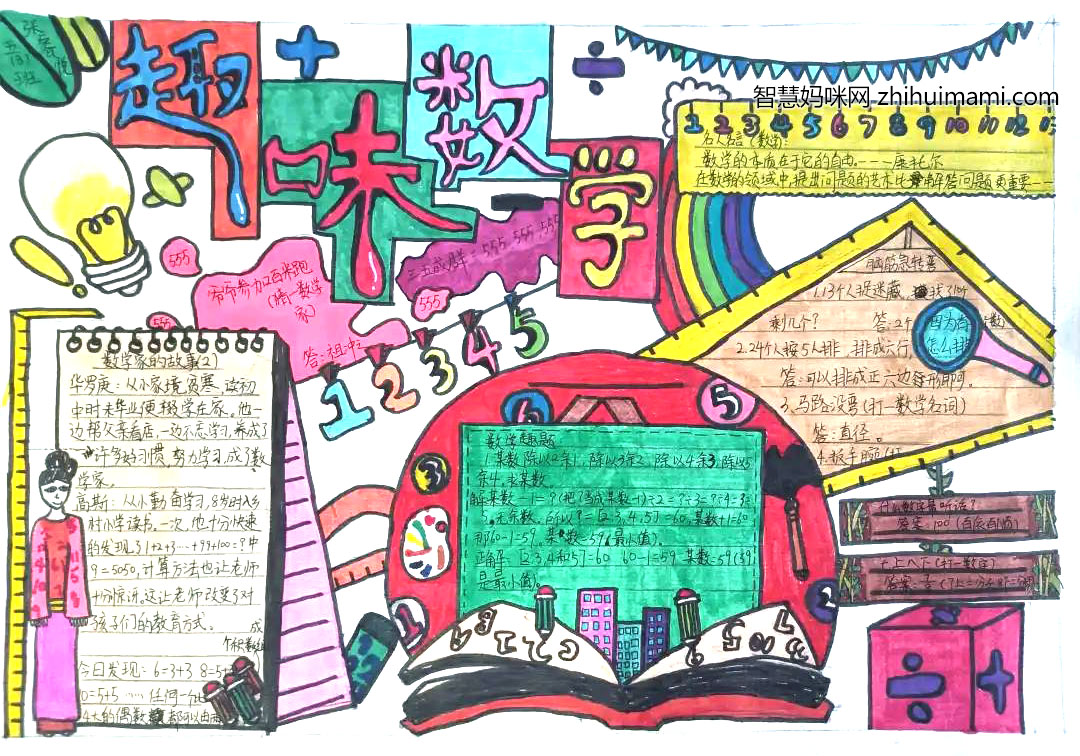 五(3)班
趣味数学
智慧妈咪网-zhihuimami.com
1 2 3 4 5 6 7 8 9 10 11 12 13
名人名言(数学):
数学的本质在于它的自由。---康托尔
在数学的领域中,提出问题的艺术比解答问题更重要---
555
555
555
爷爷参加百米跑
(猜一数学家)
答:祖冲之
三五成群= 555 555 555
1 2 3 4 5
脑筋急转弯
1.13个人捉迷藏,找了10个
剩几个? 答:2个
2.24个人按5人排,排成六行, 怎么排
答:可以排成正六边形即可。
3.马路没弯(打一数学名词)
答:直径。
4.扳手腕(打
数学家的故事(2)
华罗庚:从小家境贫寒,读初
中时未毕业便辍学在家。他一
边帮父亲看店,一边不忘学习,养成了
许多好习惯,努力学习,成了数
学家。
高斯:从小勤奋学习,8岁时入乡
村小学读书,一次,他十分快速
的发现了1+2+3…+99+100=?中
?=5050,计算方法也让老师
十分惊讶。这让老师改变了对
孩子们的教育方式。
今日发现:6=3+3 8=5+
10=5+5 …… 任何一个比
4大的偶数都可以由
数学趣题
1.某数 除以2余1,除以3余2,除以4余3,除以5
余4,求某数。
正确解:[2.3.4和5]=60 60-1=59 某数=59(59
是最小值)。
6 5 3 1 2
答案:100(百依百顺)
七上八下(打一数字)
÷ +